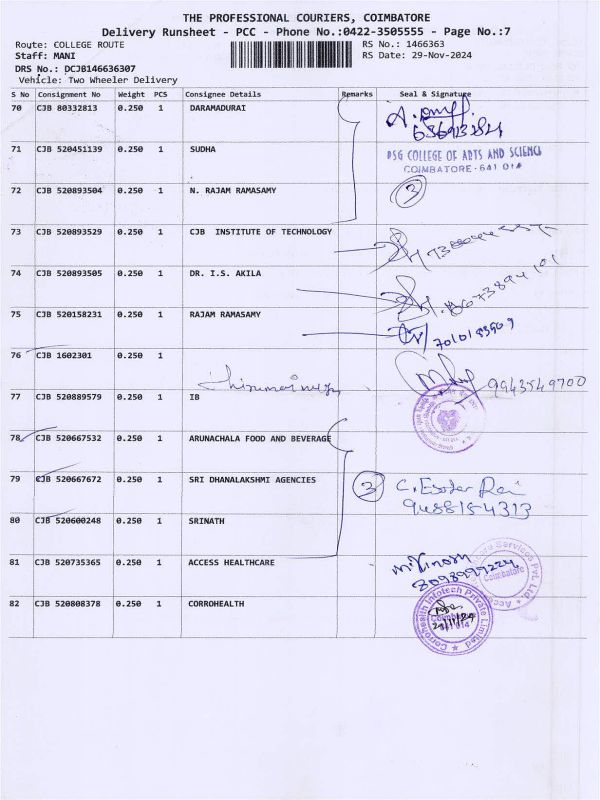 THE PROFESSIONAL COURIERS, COIMBATORE
Delivery Runsheet - PCC - Phone No.:0422-3505555 - Page No.:7
Route: COLLEGE ROUTE RS No.: 1466363
Staff: MANI RS Date: 29-Nov-2024
DRS No.: DCJB146636307
Vehicle: Two Wheeler Delivery
S No Consignment No Weight PCS Consignee Details Remarks Seal & Signature
70 CJB 80332813 0.250 1 DARAMADURAI
71 CJB 520451139 0.250 1 SUDHA
PSG COLLEGE OF ARTS AND SCIENCE
COIMBATORE - 641 014
72 CJB 520893504 0.250 1 N. RAJAM RAMASAMY 3
73 CJB 520893529 0.250 1 CJB INSTITUTE OF TECHNOLOGY
74 CJB 520893505 0.250 1 DR. I.S. AKILA
75 CJB 520158231 0.250 1 RAJAM RAMASAMY
76 CJB 1602301 0.250 1
9943549700
77 CJB 520889579 0.250 1 IB
78 CJB 520667532 0.250 1 ARUNACHALA FOOD AND BEVERAGE
79 CJB 520667672 0.250 1 SRI DHANALAKSHMI AGENCIES 3
9488154313
80 CJB 520600248 0.250 1 SRINATH
81 CJB 520735365 0.250 1 ACCESS HEALTHCARE
Services Pvt. Ltd
Coimbatore
82 CJB 520808378 0.250 1 CORROHEALTH
Corrohealth Infotech Private Limited
Coimbatore